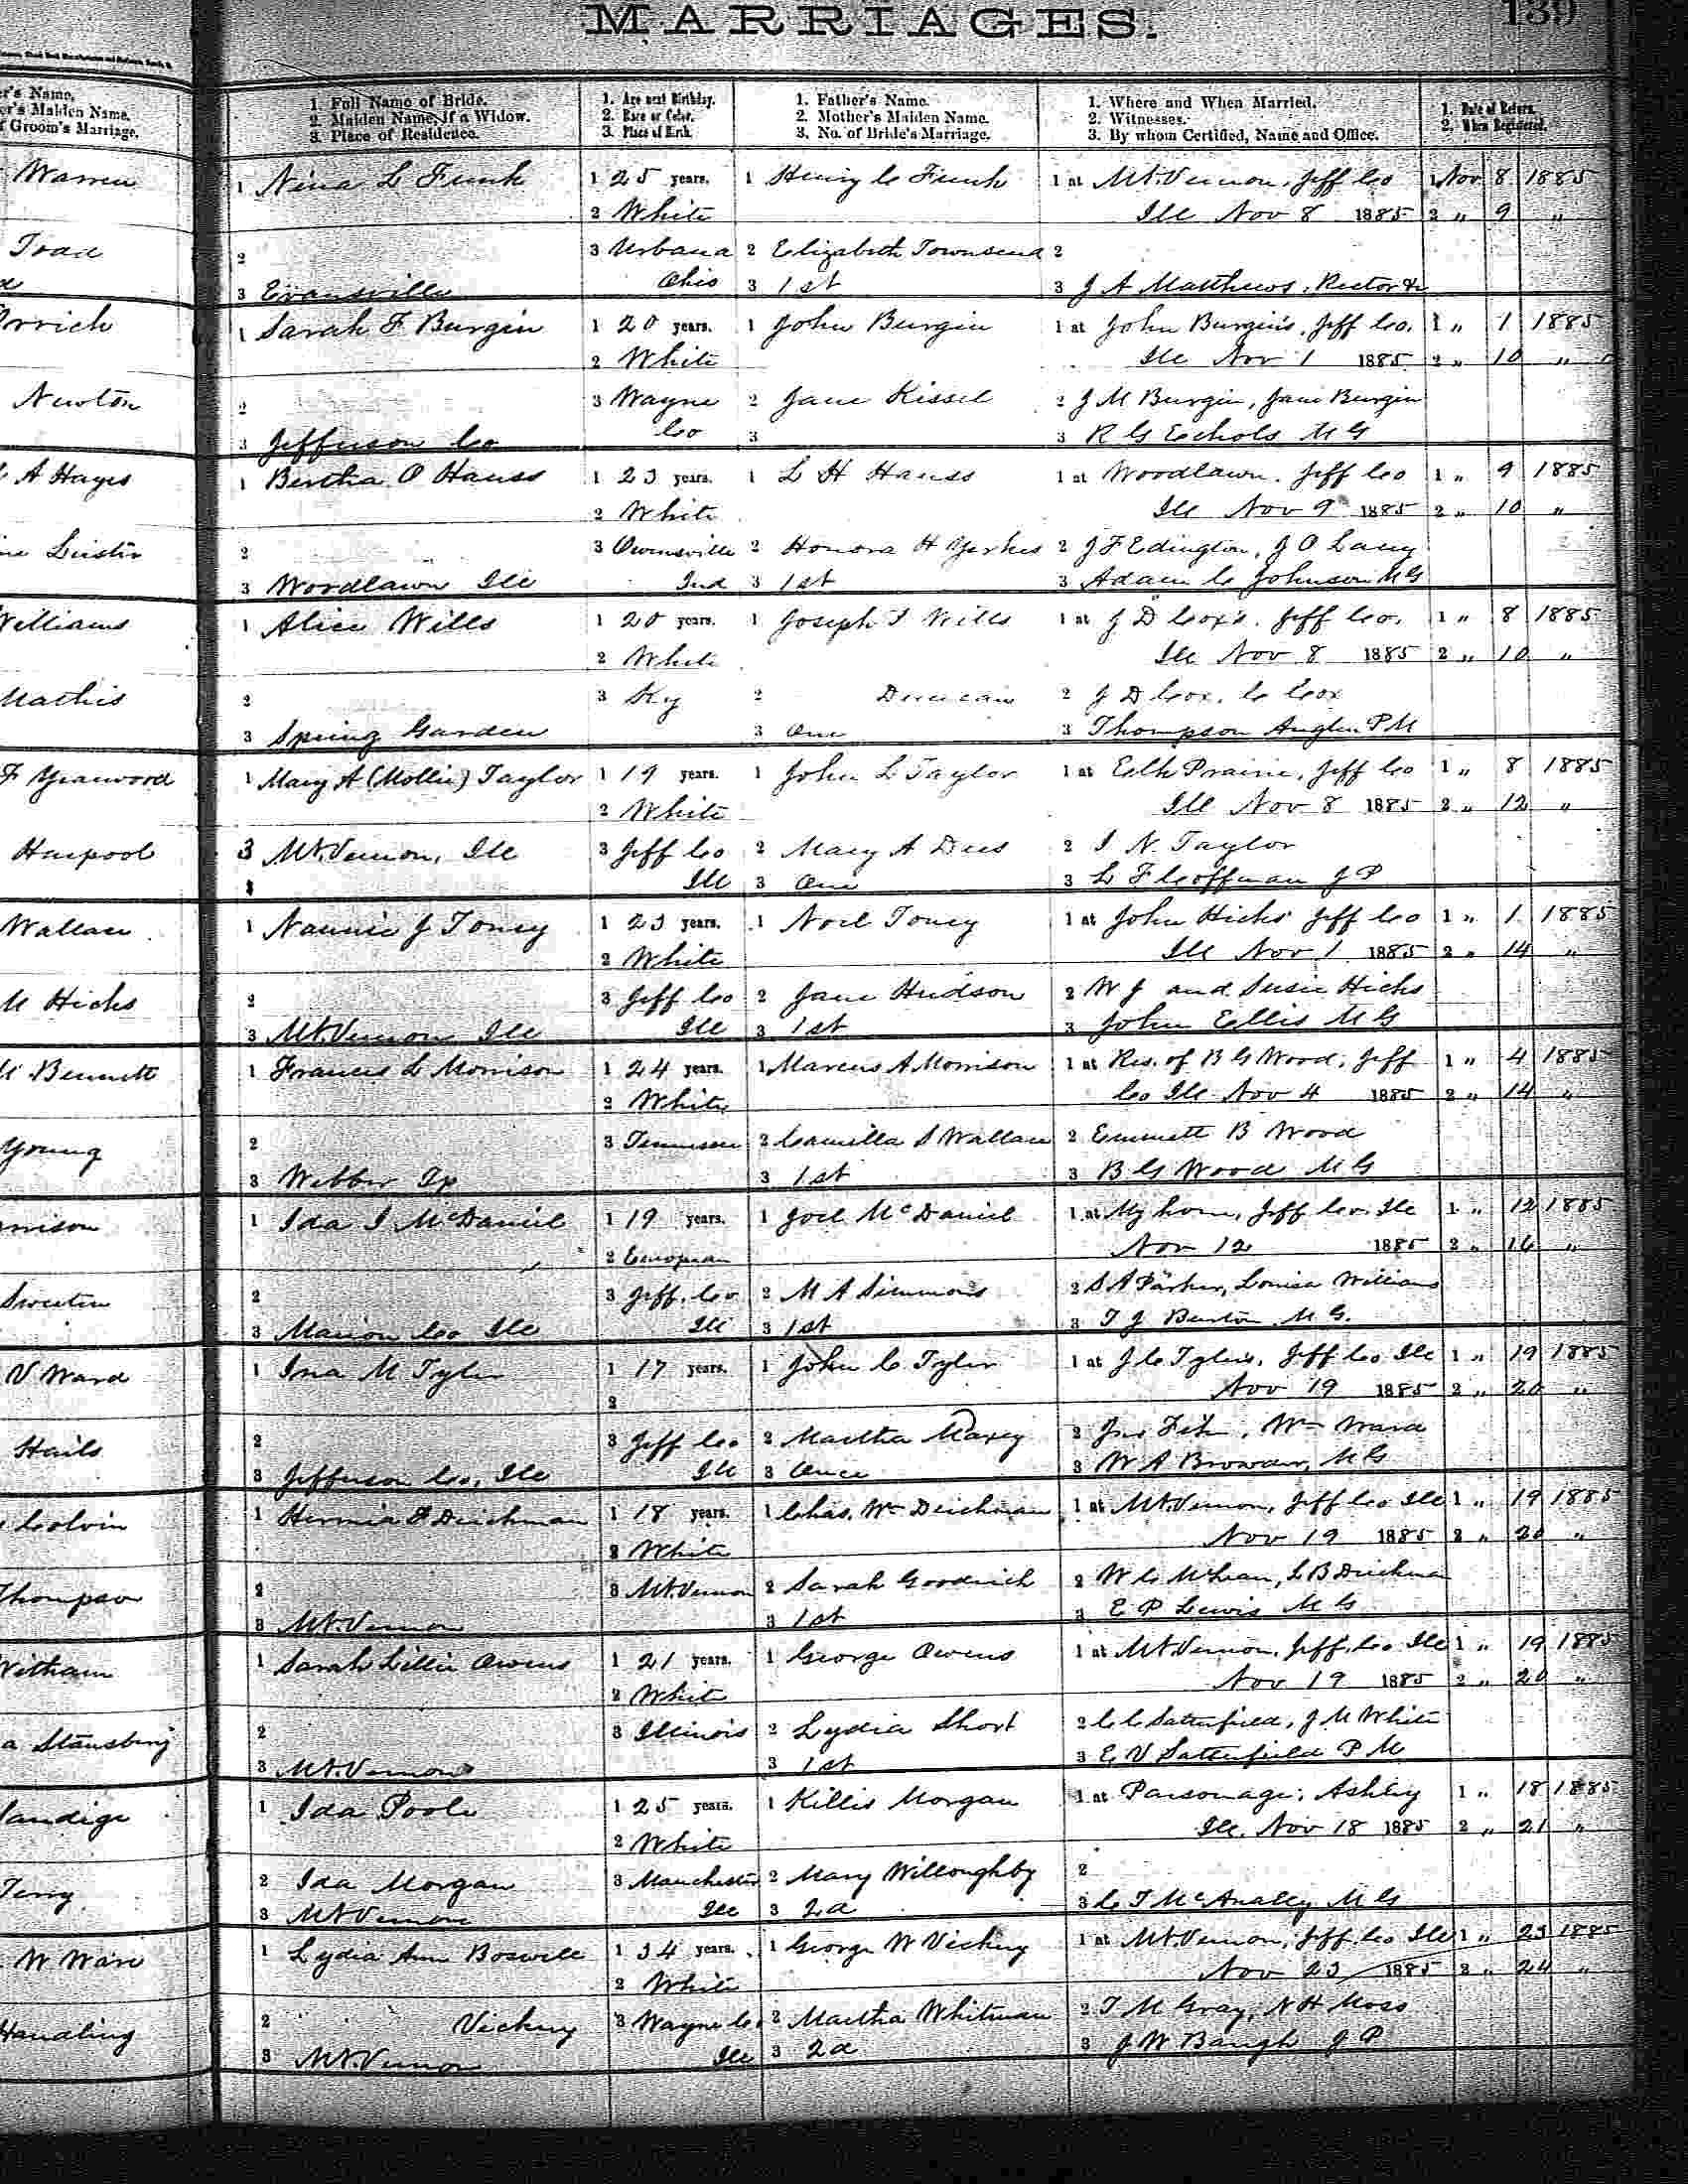 MARRIAGES.
139
er's Name,
er's Maiden Name.
f Groom's Marriage.
1. Full Name of Bride.
2. Maiden Name, if a Widow.
3. Place of Residence.
1. Age next Birthday.
2. Race or Color.
3. Place of Birth.
1. Father's Name.
2. Mother's Maiden Name.
3. No. of Bride's Marriage.
1. Where and When Married.
2. Witnesses.
3. By whom Certified, Name and Office.
1. Date of Return.
2. When Registered.
Warren 1 Nina L Funk 1 25 years. 1 Henry C Funk 1 at Mt. Vernon, Jeff Co 1 Nov 8 1885
2 White Ill Nov 8 1885 2 " 9 "
Toad 2 3 Urbana 2 Elizabeth Townsend 2
3 Evansville Ohio 3 1st 3 J A Matthews, Rector &c
rrich 1 Sarah F Burgin 1 20 years. 1 John Burgin 1 at John Burgin's, Jeff Co. 1 " 1 1885
2 White Ill Nov 1 1885 2 " 10 "
Newton 2 3 Wayne 2 Jane Kissel 2 J M Burgin, Jane Burgin
3 Jefferson Co Co 3 3 R G Echols M G
A Hayes 1 Bertha O Hauss 1 23 years. 1 L H Hauss 1 at Woodlawn, Jeff Co 1 " 9 1885
2 White Ill Nov 9 1885 2 " 10 "
2 3 Owensville 2 Honora H Yerkes 2 J F Edington, J O Lacey
3 Woodlawn Ill Ind 3 1st 3 Adam C Johnson M G
Williams 1 Alice Wills 1 20 years. 1 Joseph T Wills 1 at J D Cox's, Jeff Co. 1 " 8 1885
2 White Ill Nov 8 1885 2 " 10 "
Mathis 2 3 Ky 2 Duncan 2 J D Cox, C Cox
3 Spring Garden 3 One 3 Thompson Anglen P M
F Yearwood 1 Mary A (Mollie) Taylor 1 19 years. 1 John L Taylor 1 at Elk Prairie, Jeff Co 1 " 8 1885
2 White Ill Nov 8 1885 2 " 12 "
Harpool 3 Mt. Vernon, Ill 3 Jeff Co 2 Mary A Dees 2 I N Taylor
Ill 3 One 3 L F Coffman J P
Wallace 1 Nannie J Toney 1 23 years. 1 Noel Toney 1 at John Hicks' Jeff Co 1 " 1 1885
2 White Ill Nov 1 1885 2 " 14 "
M Hicks 2 3 Jeff Co 2 Jane Hudson 2 W J and Susie Hicks
3 Mt. Vernon Ill Ill 3 1st 3 John Ellis M G
Bennett 1 Francis L Morrison 1 24 years. 1 Marcus A Morrison 1 at Res. of B G Wood, Jeff 1 " 4 1885
2 White Co Ill Nov 4 1885 2 " 14 "
Young 2 3 Tennessee 2 Camilla S Wallace 2 Emmett B Wood
3 Webber Tp 3 1st 3 B G Wood M G
rrison 1 Ida I McDaniel 1 19 years. 1 Joel McDaniel 1 at My home, Jeff Co. Ill 1 " 12 1885
2 European Nov 12 1885 2 " 16 "
Sweeten 2 3 Jeff. Co 2 M A Simmons 2 S A Parker, Louisa Williams
3 Marion Co Ill Ill 3 1st 3 T J Burton M. G.
V Ward 1 Ina M Tyler 1 17 years. 1 John C Tyler 1 at J C Tyler's, Jeff Co Ill 1 " 19 1885
2 Nov 19 1885 2 " 20 "
Hails 2 3 Jeff Co 2 Martha Maxey 2 Jno , Wm Ward
3 Jefferson Co, Ill Ill 3 Once 3 W A Browder, M G
Colvin 1 Hermia F Deichman 1 18 years. 1 Chas. Wm Deichman 1 at Mt. Vernon, Jeff Co Ill 1 " 19 1885
2 White Nov 19 1885 2 " 20 "
Thompson 2 3 Mt. Vernon 2 Sarah Goodrich 2 W C McLean, L B Deichman
3 Mt. Vernon 3 1st 3 E P Lewis M G
Witham 1 Sarah Lillie Owens 1 21 years. 1 George Owens 1 at Mt. Vernon, Jeff. Co Ill 1 " 19 1885
2 White Nov 19 1885 2 " 20 "
a Stansbury 2 3 Illinois 2 Lydia Short 2 C C Satterfield, J M White
3 Mt. Vernon 3 1st 3 E V Satterfield P M
andige 1 Ida Poole 1 25 years. 1 Killis Morgan 1 at Parsonage, Ashley 1 " 18 1885
2 White Ill. Nov 18 1885 2 " 21 "
Terry 2 Ida Morgan 3 Manchester 2 Mary Willoughby 2
3 Mt Vernon Ill 3 2d 3 C T McAnally M G
W Ware 1 Lydia Ann Boswell 1 34 years. 1 George W Vickrey 1 at Mt. Vernon, Jeff. Co Ill 1 " 23 1885
2 White Nov 23 1885 2 " 24 "
Handling 2 Vickrey 3 Wayne Co. 2 Martha Whitman 2 T M Gray, N H Moss
3 Mt. Vernon Ill 3 2d 3 J W Baugh J P